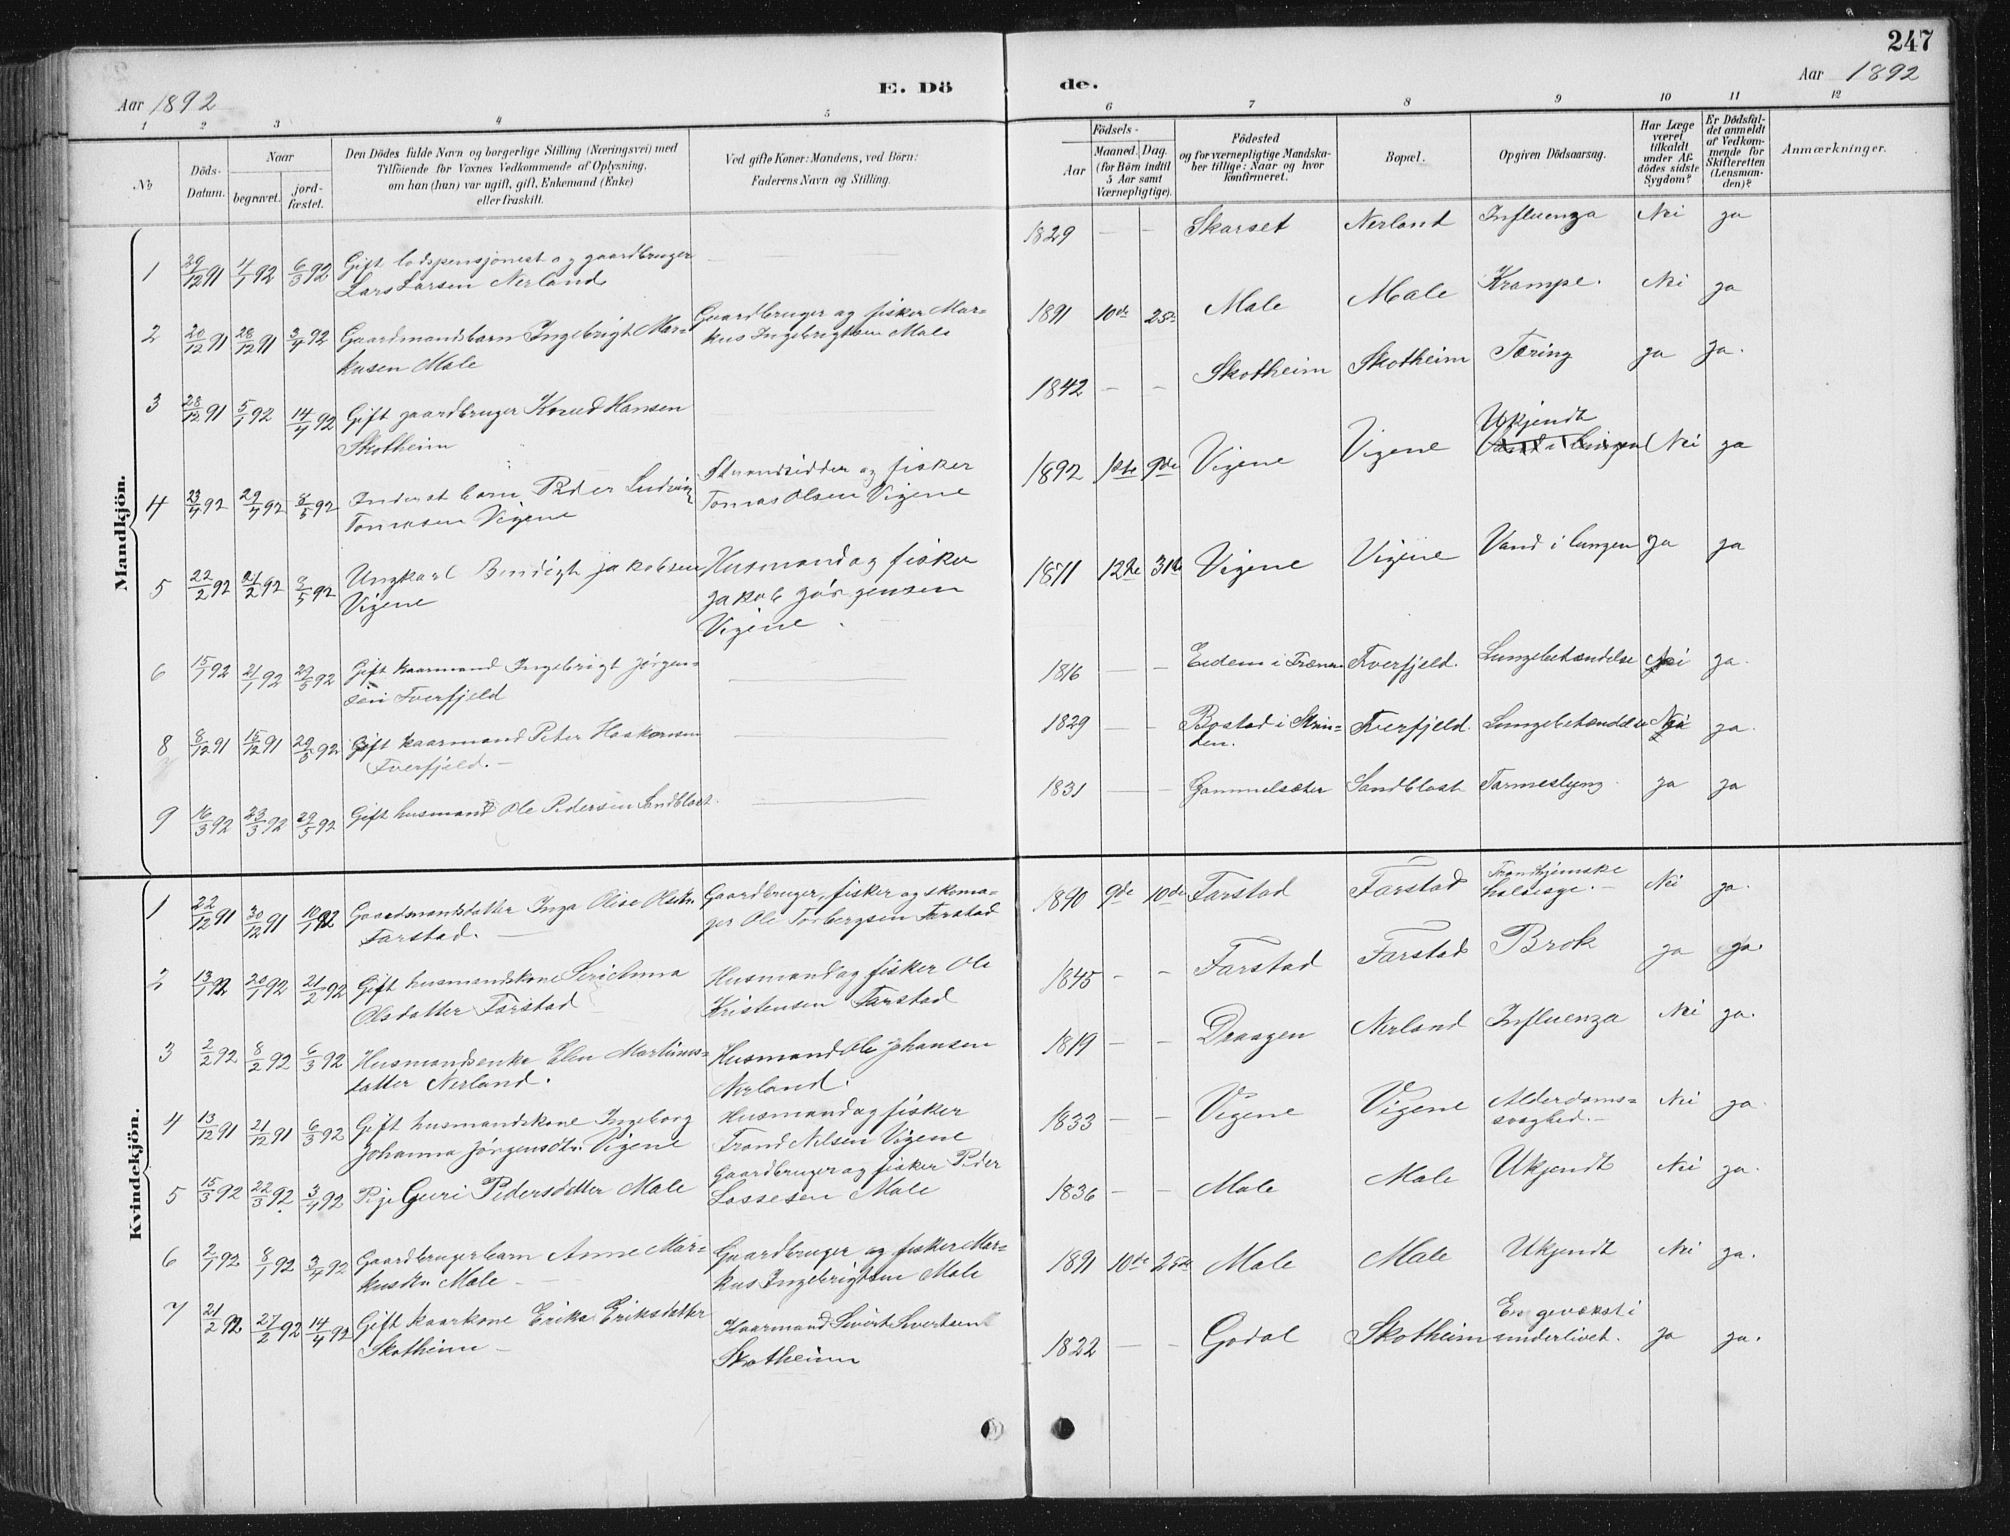 247
Aar 1892
E. Dö
de.
Aar 1892
1 2 3 4 5 6 7 8 9 10 11 12
No
Döds-
Datum.
Naar
begravet.
jord-
fæstet.
Den Dödes fulde Navn og borgerlige Stilling (Næringsvei) med
Tilföiende for Voxnes Vedkommende af Oplysning,
om han (hun) var ugift, gift, Enkemand (Enke)
eller fraskilt.
Ved gifte Koner: Mandens, ved Börn:
Faderens Navn og Stilling.
Födsels-
Aar
Maaned. Dag.
(for Børn indtil
5 Aar samt
Værnepligtige).
Födested
og for værnepligtige Mandska-
ber tillige: Naar og hvor
konfirmeret.
Bopæl.
Opgiven Dödsaarsag.
Har Læge
været
tilkaldt
under Af-
dødes sidste
Sygdom?
Er Dödsfal-
det anmeldt
af Vedkom-
mende for
Skifteretten
(Lensman-
den)?
Anmærkninger.
Mandkjön.
1 29/12 91 4/1 92 6/3 92 Gift lodspensjonest og gaardbruger
Lars Larsen Nerland
1829 — — Skarset Nerland Influenza Nei ja
2 20/12 91 28/12 91 3/4 92 Gaardmandsbarn Ingebrigt Mar-
kusen Male
Gaardbruger og fisker Mar-
kus Ingebrigtsen Male
1891 10de 25de Male Male Krampe. Nei ja
3 28/12 91 5/1 92 14/4 92 Gift gaardbruger Knud Hansen
Skotheim
1842 — — Skotheim Skotheim Tæring ja ja.
4 23/4 92 29/4 92 8/5 92 Inderst barn Peder Ludvig
Tomasen Vigene
Strandsidder og fisker
Tomas Olsen Vigene
1892 1ste 9de Vigene Vigene Ukjendt
Vand i Lungen Nei ja
5 22/2 92 27/2 92 8/5 92 Ungkarl Bendigt Jakobsen
Vigene
Husmand og fisker
Jakob Jørgensen
Vigene.
1871 12te 31te Vigene Vigene Vand i lungen ja ja
6 15/1 92 21/1 92 29/5 92 Gift kaarmand Ingebrigt Jørgen-
sen Tverfjeld
1816 — — Eidem i Fræna Tverfjeld. Lungebetændelse Nei ja.
8 8/12 91 15/12 91 29/5 92 Gift kaarmand Peter Haakonsen
Tverfjeld.—
1829 — — Bostad i Strin-
den. Tverfjeld. Lungebetændelse Nei ja.
9 16/3 92 23/3 92 29/5 92 Gift husmand Ole Pedersen Sandblast.
1831 — — Gammelsæter Sandblast Tarmeslyng. ja ja
Kvindekjön.
1 22/12 91 30/12 91 10/1 92 Gaardmandsdatter Inga Olise Olsdtr.
Farstad. —
Gaardbruger, fisker og skoma-
ger Ole Torbergsen Farstad
1890 9de 10de Farstad Farstad Trondhjemske
halssyge.— Nei ja.
2 13/1 92 20/1 92 21/2 92 Gift husmandskone Serianna
Olsdatter Farstad
Husmand og fisker Ole
Kristensen Farstad
1845 - - Farstad Farstad Brok ja ja.
3 2/2 92 8/2 92 6/3 92 Husmandsenke Elen Martinus-
datter Nerland.
Husmand Ole Johansen
Nerland.
1819 - - Draagen Nerland Influenza Nei ja.
4 13/12 91 21/12 91 6/3 92 Gift husmandskone Ingeborg
Johanna Jørgensdtr. Vigene
Husmand og fisker
Trond Nilsen Vigene
1833 — — Vigene Vigene Alderdoms-
svaghed.— Nei ja.
5 15/3 92 22/3 92. 3/4 92 Pige Guri Pedersdatter Male
Gaardbruger og fisker Peder
Lassesen Male
1836 — — Male Male Ukjendt Nei ja.
6 2/1 92 8/1 92 3/4 92 Gaardbrugerbarn Anne Mar-
kusdtr Male —
Gaardbruger og fisker Mar-
kus Ingebrigtsen Male
1891 10de 25de Male Male Ukjendt Nei ja.
7 21/2 92 27/2 92 14/4 92 Gift kaarkone Erika Eriksdatter
Skotheim —
Kaarmand Sivert Sivertsen
Skotheim
1822 — — Godal Skotheim En gevækst i
underlivet. ja ja.